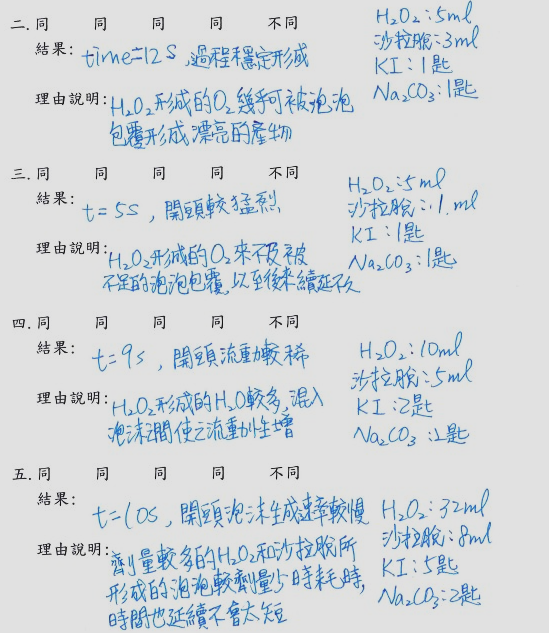 二. 同 同 同 同 不同
結果: time=12s, 過程穩定形成
理由說明: H₂O₂形成的O₂幾乎可被泡泡
包覆形成漂亮的產物
H₂O₂:5ml
沙拉脫:3ml
KI:1匙
Na₂CO₃:1匙
三. 同 同 同 同 不同
結果: t=5s, 開頭較猛烈
理由說明: H₂O₂形成的O₂來不及被
不足的泡泡包覆,以至後來續延不久
H₂O₂:5ml
沙拉脫:1.ml
KI:1匙
Na₂CO₃:1匙
四. 同 同 同 同 不同
結果: t=9s, 開頭流動較稀
理由說明: H₂O₂形成的H₂O較多,混入
泡沫之間使之流動性增
H₂O₂:10ml
沙拉脫:5ml
KI:2匙
Na₂CO₃:1匙
五. 同 同 同 同 不同
結果: t=10s, 開頭泡沫生成速率較慢
理由說明: 劑量較多的H₂O₂和沙拉脫所
形成的泡泡較劑量少時耗時,
時間也延續不會太短
H₂O₂:32ml
沙拉脫:8ml
KI:5匙
Na₂CO₃:2匙